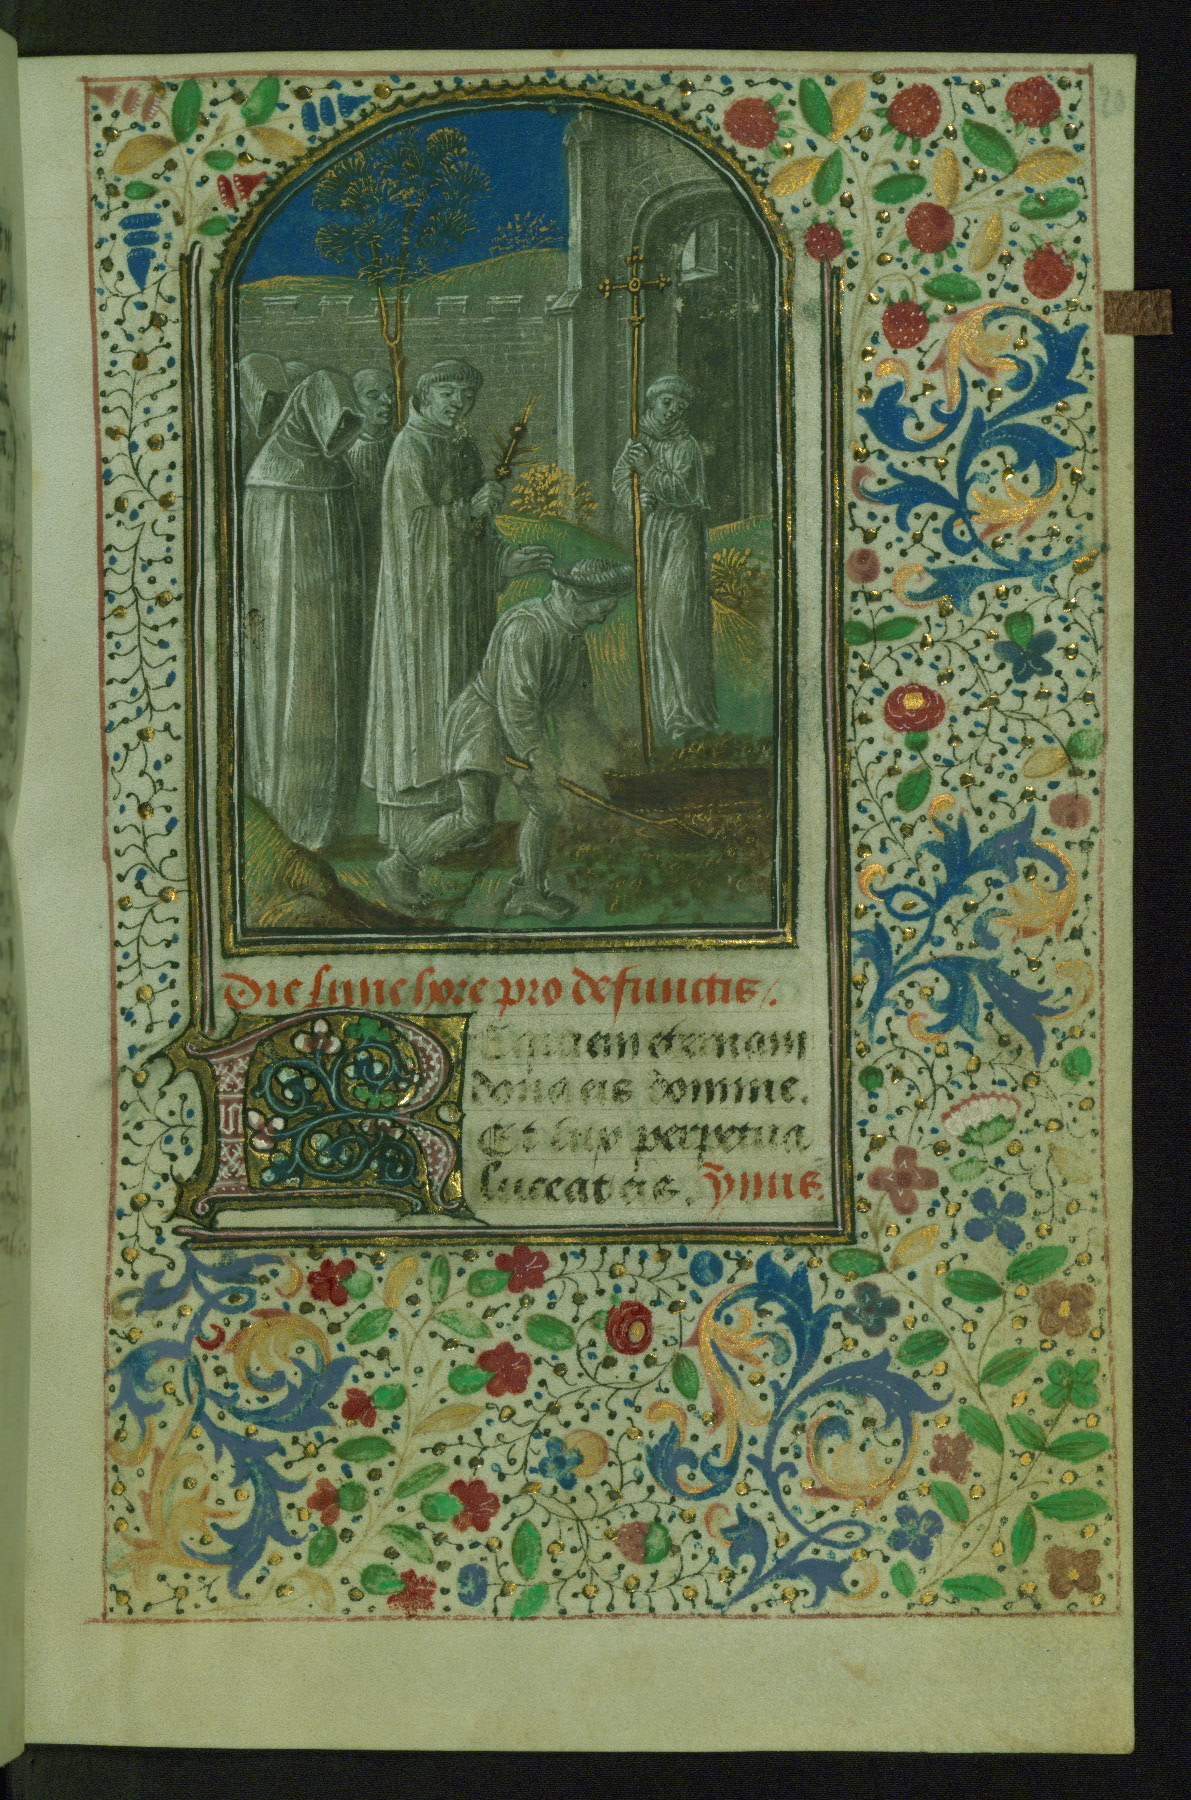 Die lune hore pro defunctis.
Requiem eternam
dona eis domine.
Et lux perpetua
luceat eis. ymnus